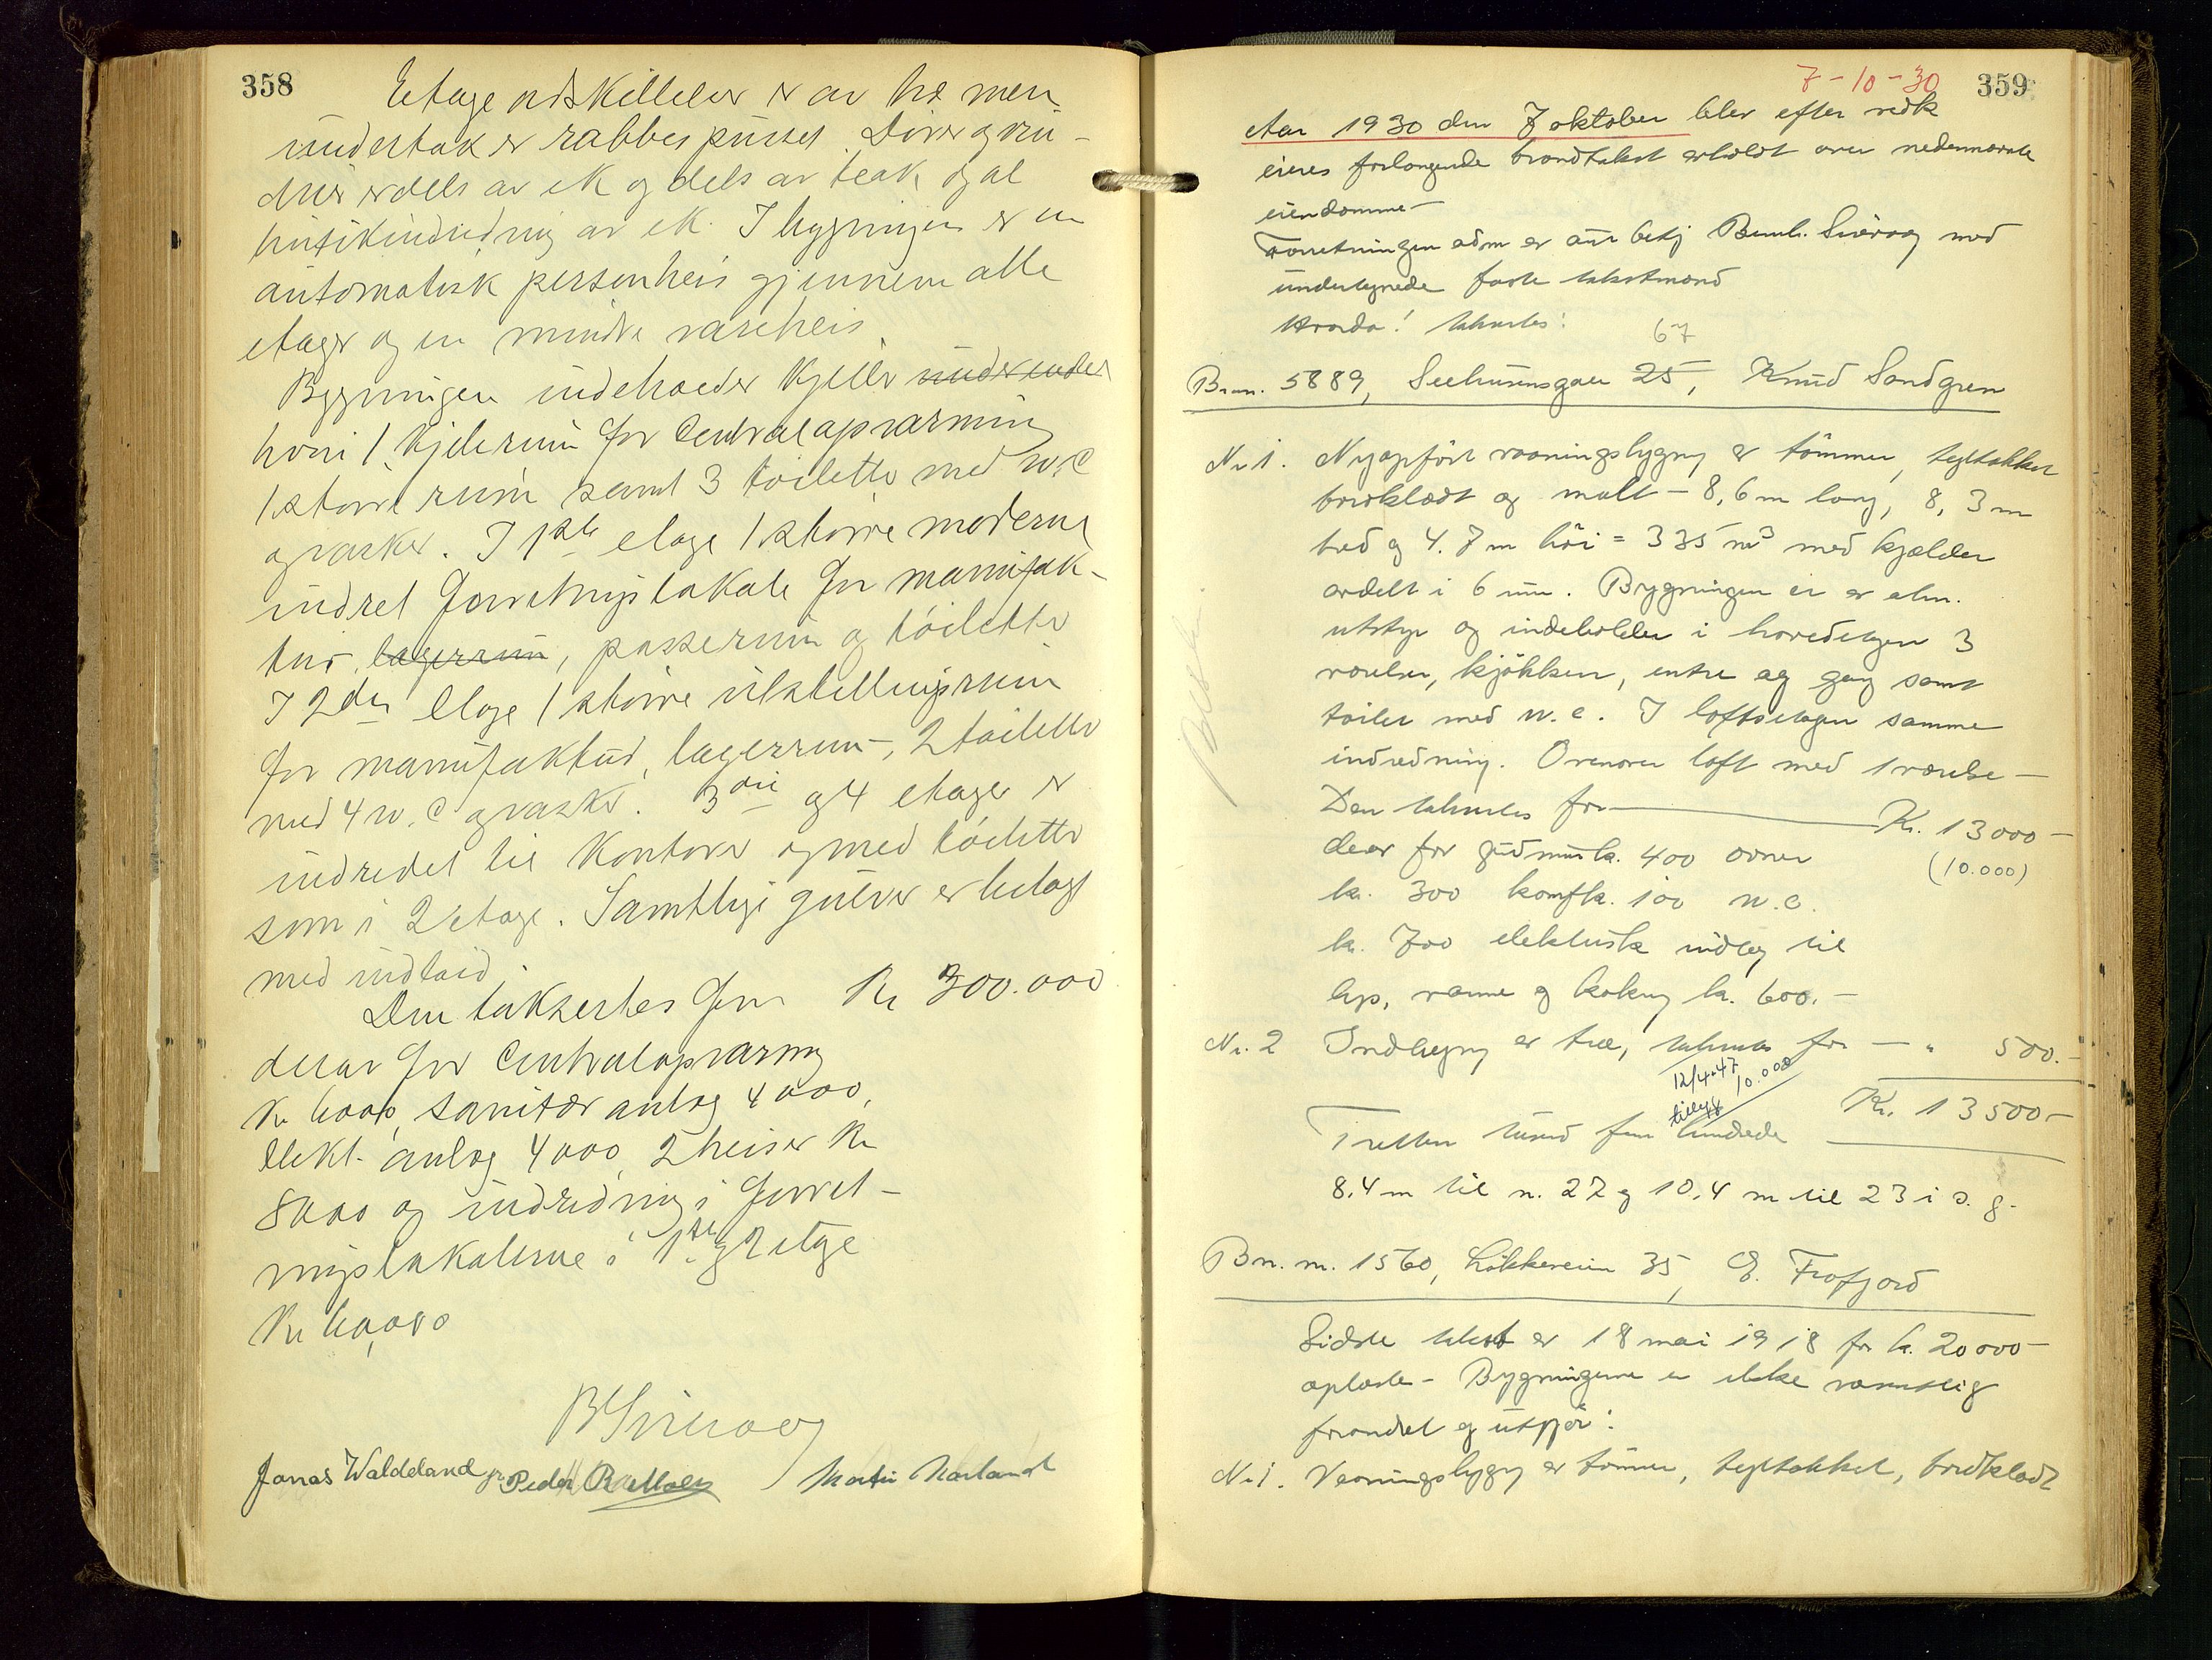 358
Etage adskillelser er av træ men
undertak er rabbespusset. Dører og vin-
duer er dels av ek og dels av teak og al
butikindredning av ek. I bygningen er en
automatisk personheis gjennem alle
etager og en mindre vareheis
Bygningen indeholder kjeller
hvori 1 kjelerum for Centralopvarming
1 større rum samt 3 toiletter med w.c
og vasker. I 1ste etage 1 større moderne
indret forretningslokale for manufak-
tur, lagerrum, pakkerum og toiletter
I 2den etage 1 større utstillingsrum
for manufaktur, lagerrum, 2 toiletter
med 4 w.c og vasker. 3die og 4 etage er
indredet til Kontorer og med toiletter
som i 2 etage. Samtlige gulver er belagt
med indlaid.
Den taksertes for Kr 300.000
derav for Centralopvarming
Kr 6000, sanitær anlæg 4000,
elekt. anlæg 4000, 2 heiser Kr
8000 og indredning i forret-
ningslokalerne i 1ste og 2 etage
Kr 60,000
B Sirevaag
Jonas Waldeland Peder
7-10-30 359
Aar 1930 den 7 oktober blev efter vedk
eieres forlangende brandtakst avholdt over nedennævnte
eiendomme -
Forretningen adm er aut betj Bernh. Sirevaag med
undertegnede faste takstmænd
Hvorda! takseres:
67
Br.nr. 5889, Seehusensgate 25, Knud Sandgren
Nr 1. Nyopført vaaningsbygning er tømmer, tegltækket
bordklædt og malt - 8,6 m lang, 8,3 m
bred og 4.7 m høi = 335 m3 med kjælder
avdelt i 6 rum. Bygningen er er alm.
utstyr og indeholder i hovedetagen 3
værelser, kjøkken, entre og gang samt
toilet med w.c. I loftsetagen samme
indredning. Ovenover loft med 1 værelse -
Den takseres for Kr. 13000 -
derav for grundmur kr. 400 ovner (10.000)
kr. 300 komf kr. 100 w.c.
kr. 700 elektrisk indlæg til
lys, varme og kokning kr. 600. -
Nr. 2 Indhegning er træ, takseres for - " 500. -
12/4-47 10.000
tillegg
Kr. 13500 -
Tretten tusind fem hundrede
8.4 m til n. 27 og 10.4 m til 23 i s. g.
Br. nr. 1560, Løkkeveien 35, G. Frafjord
Sidste takst er 18 mai 1918 for kr. 20000 -
oplæste - Bygningerne er ikke væsentlig
forandret og utgjør:
Nr 1. Vaaningsbygning er tømmer, tegltækket, bordklædt